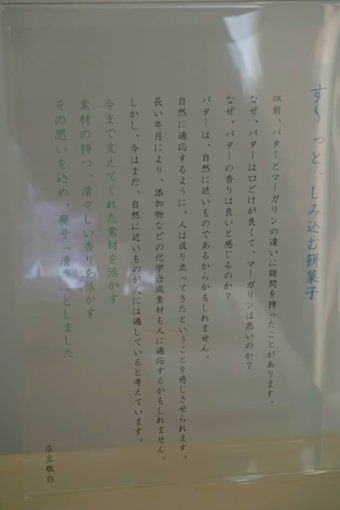 す〜っと、しみ込む餅菓子
以前、バターとマーガリンの違いに疑問を持ったことがあります。
なぜ、バターは口どけが良くて、マーガリンは悪いのか？
なぜ、バターの香りは良いと感じるのか？
バターは、自然に近いものであるからかもしれません。
自然に適応するように、人は成り立ってきたということを感じさせられます。
長い年月により、添加物などの化学合成素材も人に適応するかもしれません。
しかし、今はまだ、自然に近いものが人には適していると考えています。
今まで支えてくれた素材を活かす
素材の持つ、清々しい香りを活かす
その思いを込め、屋号「清々」としました
店主敬白